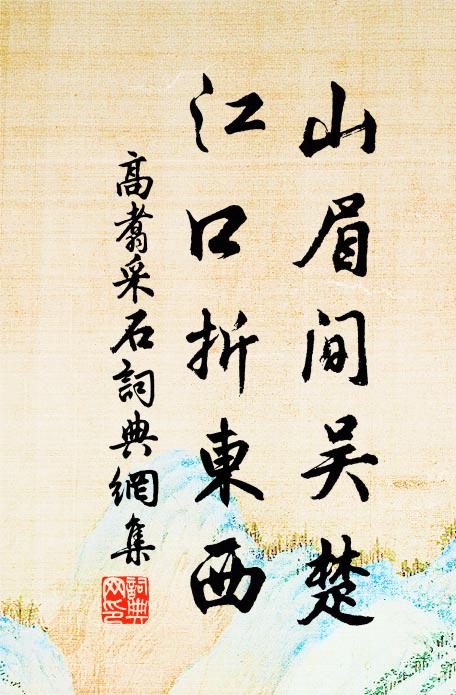 山眉間吴楚
江口折東西
高翥采石詞典網集
詞典